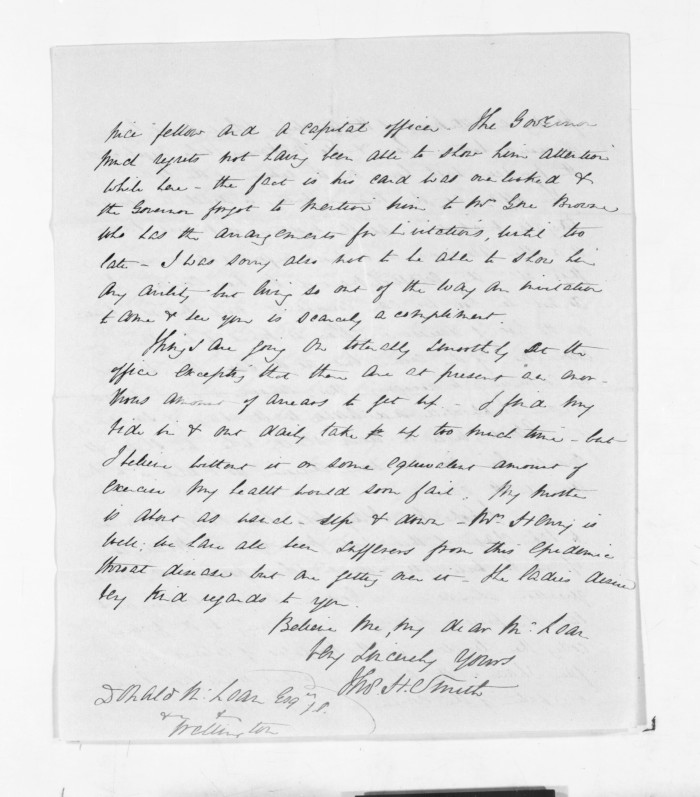 nice fellow and a capital officer. The Governor
much regrets not having been able to show him attention
while here - the fact is his card was overlooked &
the Governor forgot to mention him to Mrs Gore Browne
who has the arrangements for invitations, until too
late - I was sorry also not to be able to show him
any civility but living so out of the way an invitation
to come & see you is scarcely a compliment.
Things are going on tolerably smoothly at the
office excepting that there are at present an enor-
mous amount of arrears to get up - I find my
ride in & out daily take up too much time - but
I believe without it or some equivalent amount of
exercise my health would soon fail. My mother
is about as usual - up & down - Mrs Henry is
well; we have all been sufferers from this epidemic
throat disease but are getting over it - The ladies desire
very kind regards to you.
Believe me, my dear Mc Lean
Very Sincerely Yours
Thos H. Smith
Donald Mc Lean Esqre
Wellington